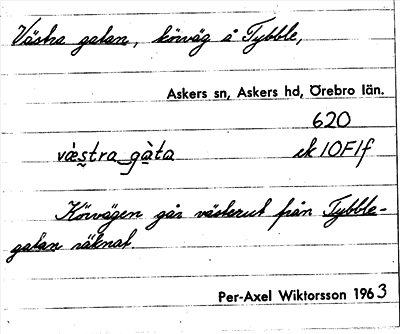 Västra gatan, körväg å Tybble,
Askers sn, Askers hd, Örebro län.
620
væstra gàta ek 10F1f
Körvägen går västerut från Tybble-
gatan räknat.
Per-Axel Wiktorsson 1963